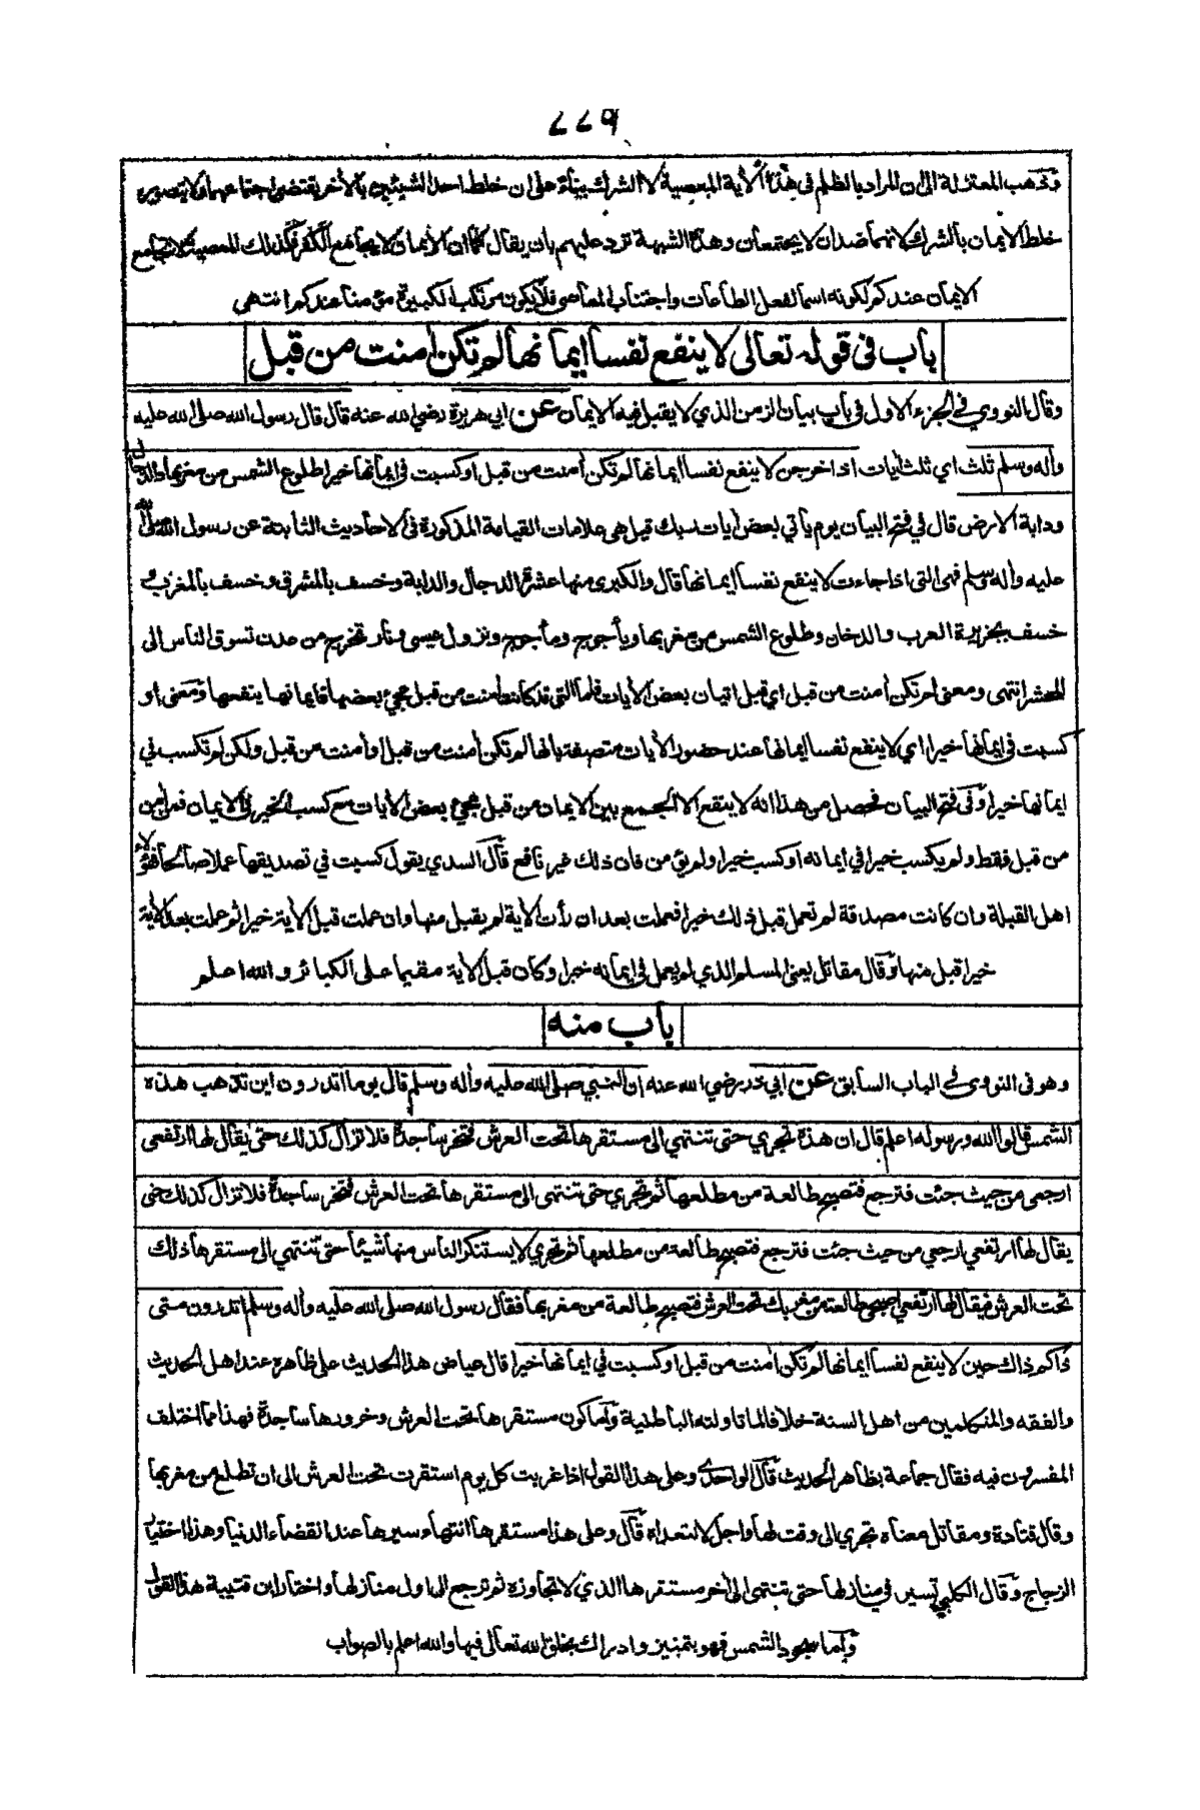 ٧٧٩
وذهب المعتزلة الى ان المراد بالظلم في هذه الآية المعصية لا الشرك بناء على ان خلط احد الشيئين بالأخر يقتضي اجتماعهما ولا يتصور
خلط الايمان بالشرك لانهما ضدان لا يجتمعان وهذه الشبهة ترد عليهم بان يقال كما ان الأيمان لا يجامع الكفر فكذلك المعصية لا تجامع
الايمان عندكم لكونه اسما لفعل الطاعات واجتناب المعاصي فلا يكون مرتكب الكبيرة مؤمنا عندكم انتهى
باب في قوله تعالى لا ينفع نفسا ايمانها لم تكن أمنت من قبل
وقال النووي في الجزء الاول في باب بيان الزمن الذي لا يقبل فيه الايمان عن ابي هريرة رضي الله عنه قال قال رسول الله صلى الله عليه
وأله وسلم ثلث اي ثلث أيات اذا خرجن لا ينفع نفسا ايمانها لم تكن أمنت من قبل او كسبت في ايمانها خيرا طلوع الشمس من مغربها والدجال
ودابة الارض قال في فتح البيان يوم يأتي بعض أيات ربك قيل هي علامات القيامة المذكورة في الاحاديث الثابتة عن رسول الله صلى الله
عليه وأله وسلم فهي التي اذا جاءت لا ينفع نفسا ايمانها قال والكبرى منها عشرة الدجال والدابة وخسف بالمشرق وخسف بالمغرب و
خسف بجزيرة العرب والدخان وطلوع الشمس من مغربها ويأجوج ومأجوج ونزول عيسى ونار تخرج من عدن تسوق الناس الى
المحشر انتهى ومعنى لم تكن أمنت من قبل اي قبل اتيان بعض الأيات فاما التي قد كانت أمنت من قبل مجيء بعضها فايمانها ينفعها ومعنى او
كسبت في ايمانها خيرا اي لا ينفع نفسا ايمانها عند حضور الأيات متصفة بانها لم تكن أمنت من قبل او أمنت من قبل ولكن لم تكسب في
ايمانها خيرا وفي فتح البيان فحصل من هذا انه لا ينفع الا الجمع بين الايمان من قبل مجيء بعض الأيات مع كسب الخير في الايمان فمن أمن
من قبل فقط ولم يكسب خيرا في ايمانه او كسب خيرا ولم يؤمن فان ذلك غير نافع قال السدي يقول كسبت في تصديقها عملا صالحا فهؤلاء
اهل القبلة وان كانت مصدقة لم تعمل قبل ذلك خيرا فعملت بعد ان رأت الأية لم يقبل منها وان عملت قبل الأية خيرا ثم عملت بعد الأية
خيرا قبل منها وقال مقاتل يعني المسلم الذي لم يعمل في ايمانه خيرا وكان قبل الأية مقيما على الكبائر والله اعلم
باب منه
وهو في النووي في الباب السابق عن ابي ذر رضي الله عنه ان النبي صلى الله عليه وأله وسلم قال يوما اتدرون اين تذهب هذه
الشمس قالوا الله ورسوله اعلم قال ان هذه تجري حتى تنتهي الى مستقرها تحت العرش فتخر ساجدة فلا تزال كذلك حتى يقال لها ارتفعي
ارجعي من حيث جئت فترجع فتصبح طالعة من مطلعها ثم تجري حتى تنتهي الى مستقرها تحت العرش فتخر ساجدة فلا تزال كذلك حتى
يقال لها ارتفعي ارجعي من حيث جئت فترجع فتصبح طالعة من مطلعها ثم تجري لا يستنكر الناس منها شيئا حتى تنتهي الى مستقرها ذلك
تحت العرش فيقال لها ارتفعي اصبحي طالعة من مغربك تحت العرش فتصبح طالعة من مغربها فقال رسول الله صلى الله عليه وأله وسلم اتدرون متى
ذاكم ذاك حين لا ينفع نفسا ايمانها لم تكن أمنت من قبل او كسبت في ايمانها خيرا قال عياض هذا الحديث على ظاهره عند اهل الحديث
والفقه والمتكلمين من اهل السنة خلافا لما تاولته الباطنية واما كون مستقرها تحت العرش وخرورها ساجدة فهذا مما اختلف
المفسرون فيه فقال جماعة بظاهر الحديث قال الواحدي وعلى هذا القول اذا غربت كل يوم استقرت تحت العرش الى ان تطلع من مغربها
وقال قتادة ومقاتل معناه تجري الى وقت لها واجل لا تتعداه قال وعلى هذا مستقرها انتهاء سيرها عند انقضاء الدنيا وهذا اختيار
الزجاج وقال الكلبي تسير في منازلها حتى تنتهي الى أخر مستقرها الذي لا تجاوزه ثم ترجع الى اول منازلها واختار ابن قتيبة هذا القول
واما سجود الشمس فهو بتمييز وادراك بخلق الله تعالى فيها والله اعلم بالصواب